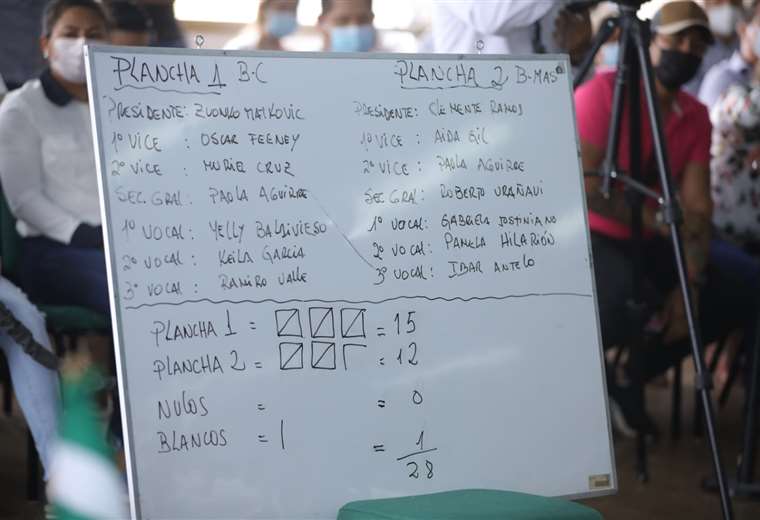 PLANCHA 1 B-C
PRESIDENTE: ZVONKO MATKOVIC
1º VICE : OSCAR FEENEY
2º VICE : MURIEL CRUZ
SEC. GRAL: PAOLA AGUIRRE
1º VOCAL: YELLY BALDIVIESO
2º VOCAL: KEILA GARCIA
3º VOCAL: RAMIRO VALLE
PLANCHA 2 B-MAS
PRESIDENTE: CLEMENTE RAMOS
1º VICE : AIDA GIL
2º VICE : PAOLA AGUIRRE
SEC GRAL: ROBERTO URAÑAVI
1º VOCAL: GABRIELA JOSTINIANO
2º VOCAL: PAMELA HILARIÓN
3º VOCAL: IBAR ANTELO
PLANCHA 1 = = 15
PLANCHA 2 = = 12
NULOS = = 0
BLANCOS = | = 1
28